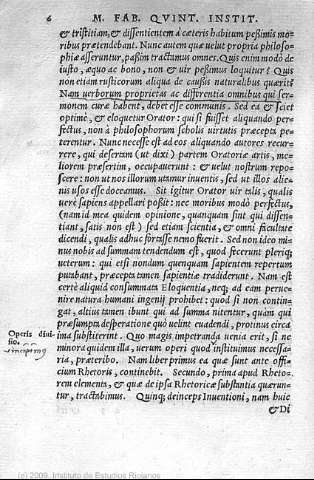 6 M. FAB. QVINT. INSTIT.
& tristitiam, & dissentientem à cæteris habitum pessimis mo
ribus prætendebant. Nunc autem quæ uelut propria philoso-
phiæ asseruntur, passim tractamus omnes. Quis enim modò de
iusto, æquo ac bono, non & uir pessimus loquitur? Quis
non etiam rusticorum aliqua de causis naturalibus quærit?
Nam uerborum proprietas ac differentia omnibus qui ser-
monem curæ habent, debet esse communis. Sed ea & sciet
optimè, & eloquetur Orator: qui si fuisset aliquando per
fectus, non à philosophorum scholis uirtutis præcepta pe
terentur. Nunc necesse est ad eos aliquando autores recur
rere, qui desertam (ut dixi) partem Oratoriæ artis, me-
liorem præsertim, occupauerunt: & uelut nostrum repo-
scere: non ut nos illorum utamur inuentis, sed ut illos alie-
nis usos esse doceamus. Sit igitur Orator uir talis, qualis
uerè sapiens appellari possit: nec moribus modò perfectus,
(nam id mea quidem opinione, quanquam sint qui dissen-
tiant, satis non est) sed etiam scientia, & omni facultate
dicendi, qualis adhuc fortasse nemo fuerit. Sed non ideo mi
nus nobis ad summam tendendum est, quod fecerunt pleriq;
ueterum: qui etsi nondum quenquam sapientem repertum
putabant, præcepta tamen sapientiæ tradiderunt. Nam est
certè aliquid consummata Eloquentia, neq; ad eam perue-
nire natura humani ingenij prohibet: quod si non contin-
gat, altius tamen ibunt qui ad summa nitentur, quàm qui
præsumpta desperatione quò uelint euadendi, protinus circa
ima substiterint. Quo magis impetranda uenia erit, si ne
Operis diui
sio.
minora quidem illa, uerum operi quod instituimus necessa-
ria, præteribo. Nam liber primus ea quæ sunt ante offi-
cium Rhetoris, continebit. Secundo, prima apud Rheto-
rem elementa, & quæ de ipsa Rhetorices substantia quærun-
tur, tractabimus. Quinq; deinceps Inuentioni, nam huic
& Di
(c) 2009. Instituto de Estudios Riojanos